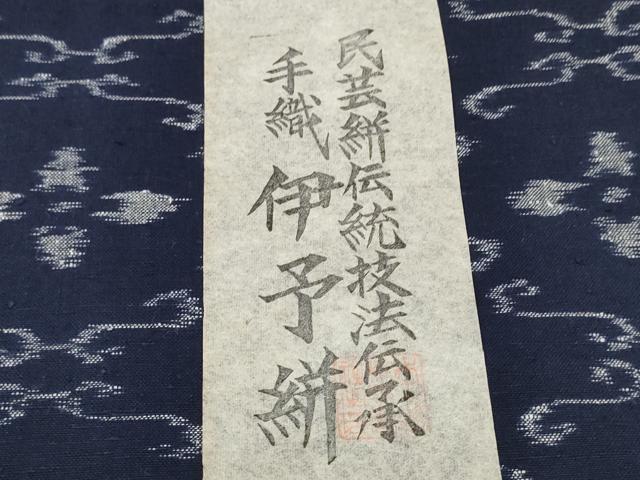 民芸絣伝統技法伝承
手織伊予絣